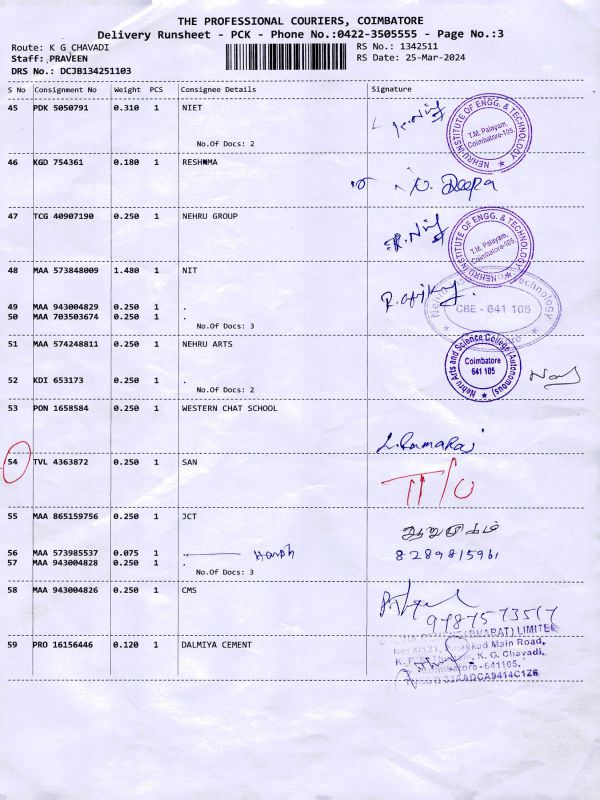 THE PROFESSIONAL COURIERS, COIMBATORE
Delivery Runsheet - PCK - Phone No.:0422-3505555 - Page No.:3
Route: K G CHAVADI
RS No.: 1342511
Staff: PRAVEEN
RS Date: 25-Mar-2024
DRS No.: DCJB134251103
S No Consignment No Weight PCS Consignee Details Signature
45 PDK 5050791 0.310 1 NIET
NEHRU INSTITUTE OF ENGG. & TECHNOLOGY
T.M. Palayam,
Coimbatore-105.
No.Of Docs: 2
46 KGD 754361 0.180 1 RESHMMA
Deepa
47 TCG 40907190 0.250 1 NEHRU GROUP
NEHRU INSTITUTE OF ENGG. & TECHNOLOGY
T.M. Palayam,
Coimbatore-105.
48 MAA 573848009 1.480 1 NIT
49 MAA 943004829 0.250 1 .
CBE - 641 105
50 MAA 703503674 0.250 1 .
No.Of Docs: 3
51 MAA 574248811 0.250 1 NEHRU ARTS
Nehru Arts and Science College (Autonomous)
Coimbatore
641 105
52 KDI 653173 0.250 1 .
No.Of Docs: 2
53 PON 1658584 0.250 1 WESTERN CHAT SCHOOL
L. Ramaraj
54 TVL 4363872 0.250 1 SAN
T/O
55 MAA 865159756 0.250 1 JCT
56 MAA 573985537 0.075 1 .
8289815961
57 MAA 943004828 0.250 1 .
No.Of Docs: 3
58 MAA 943004826 0.250 1 CMS
9787573517
59 PRO 16156446 0.120 1 DALMIYA CEMENT
(BHARAT) LIMITED
Main Road,
K. G. Chavadi,
Coimbatore-641105.